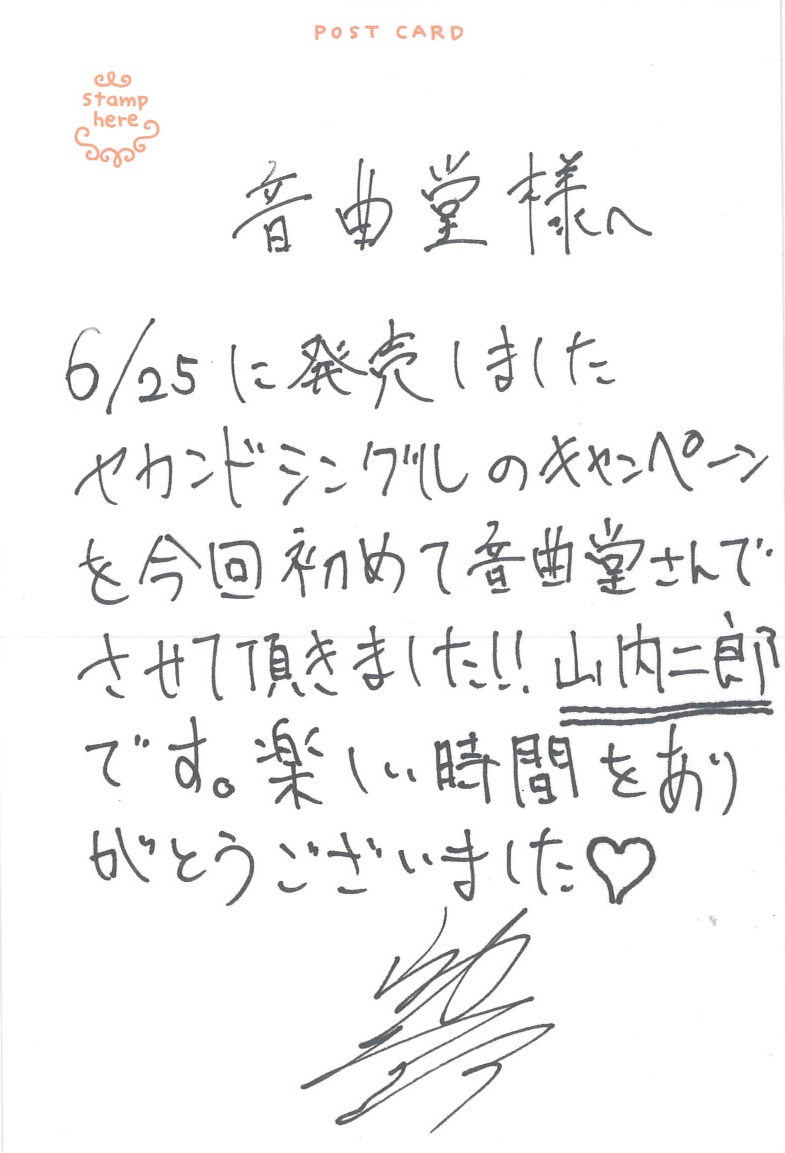 POST CARD
stamp
here
音曲堂様へ
6/25に発売しました
セカンドシングルのキャンペーン
を今回初めて音曲堂さんで
させて頂きました!! 山内二郎
です。楽しい時間をあり
がとうございました♡